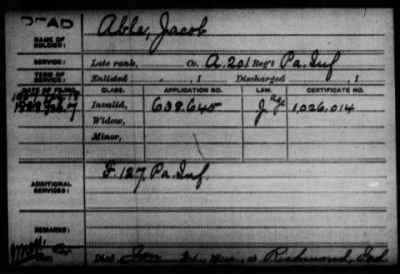 DEAD
Able, Jacob
NAME OF SOLDIER:
SERVICE: Late rank, Co. A. 201 Reg't Pa. Inf
TERM OF SERVICE: Enlisted , 1 Discharged , 1
DATE OF FILING. CLASS. APPLICATION NO. LAW. CERTIFICATE NO.
Invalid, 638.645 J Age 1,026,014
Widow,
Minor,
ADDITIONAL SERVICES: F. 127, Pa. Inf.
REMARKS:
Died Jan at Richmond, Ind.